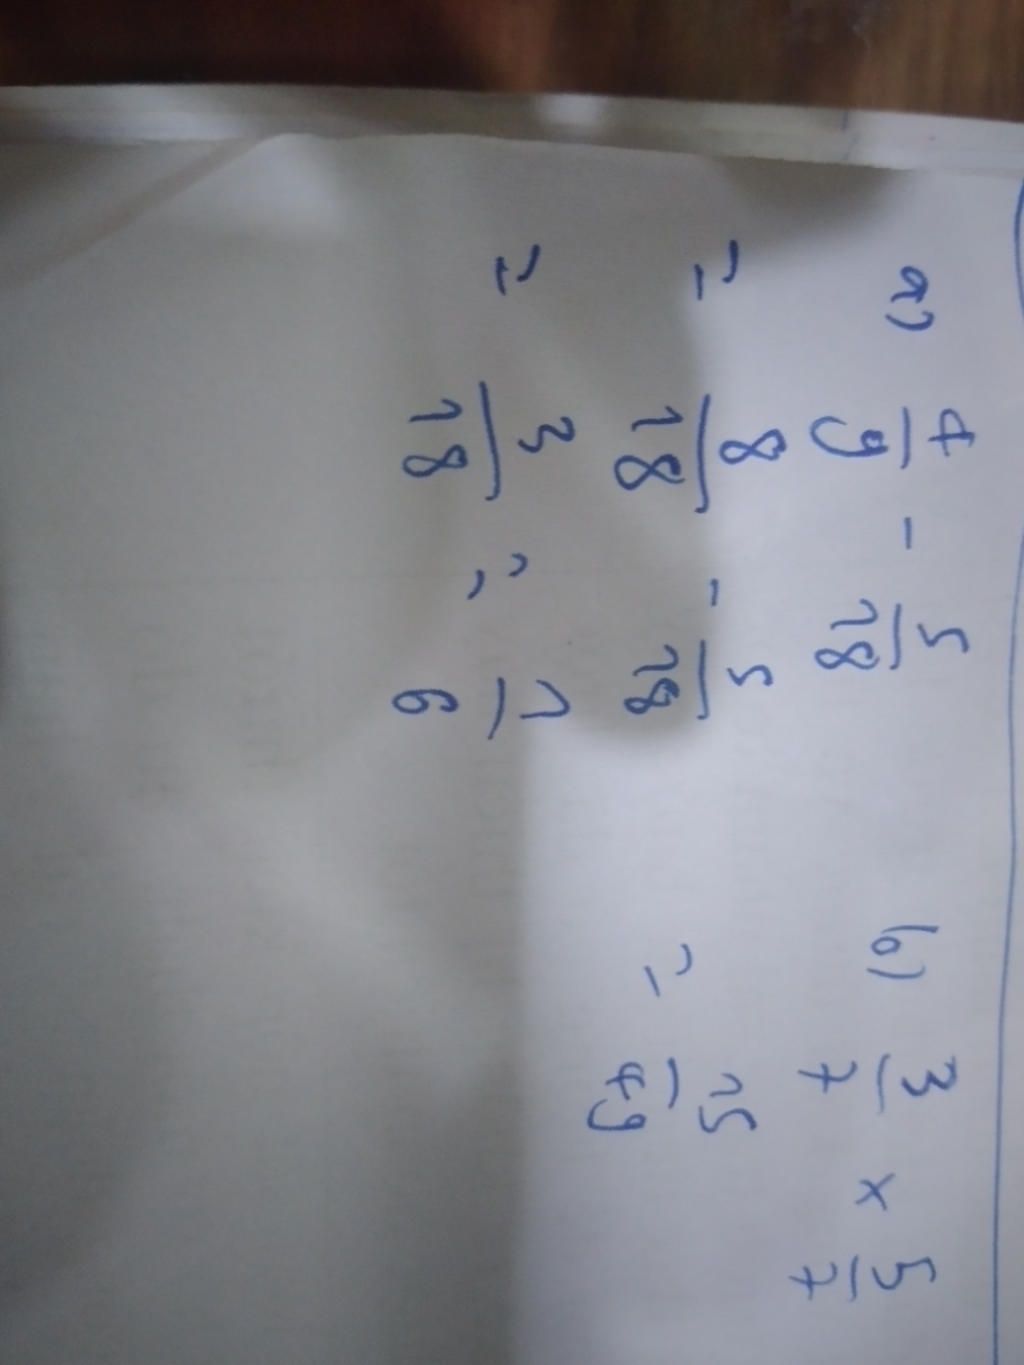 a) 4/9 - 5/18
= 8/18 - 5/18
= 3/18 = 1/6
b) 3/7 x 5/7
= 15/49